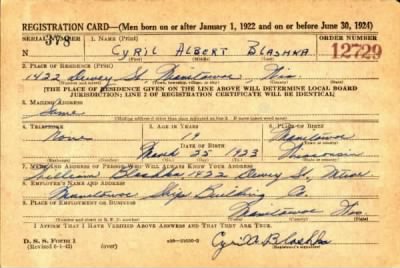 REGISTRATION CARD—(Men born on or after January 1, 1922 and on or before June 30, 1924)
SERIAL NUMBER 1. NAME (Print) ORDER NUMBER
378 CYRIL ALBERT BLASHKA 12729
(First) (Middle) (Last)
2. PLACE OF RESIDENCE (Print)
1422 Dewey St, Manitowoc, Wis.
[THE PLACE OF RESIDENCE GIVEN ON THE LINE ABOVE WILL DETERMINE LOCAL BOARD
JURISDICTION; LINE 2 OF REGISTRATION CERTIFICATE WILL BE IDENTICAL]
3. MAILING ADDRESS
Same
4. TELEPHONE 5. AGE IN YEARS 6. PLACE OF BIRTH
None 19 Manitowoc
DATE OF BIRTH
March 25 1923 Wisconsin
7. NAME AND ADDRESS OF PERSON WHO WILL ALWAYS KNOW YOUR ADDRESS
William Blashka 1422 Dewey St,
8. EMPLOYER'S NAME AND ADDRESS
Manitowoc Ship Building Co.
9. PLACE OF EMPLOYMENT OR BUSINESS
Manitowoc Wis.
I AFFIRM THAT I HAVE VERIFIED ABOVE ANSWERS AND THAT THEY ARE TRUE.
D. S. S. Form 1
(Revised 6-1-42) (over) Cyril A. Blashka